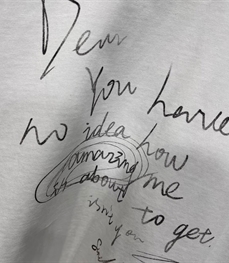 Dear
You have
no idea how
amazing
about me
to get.